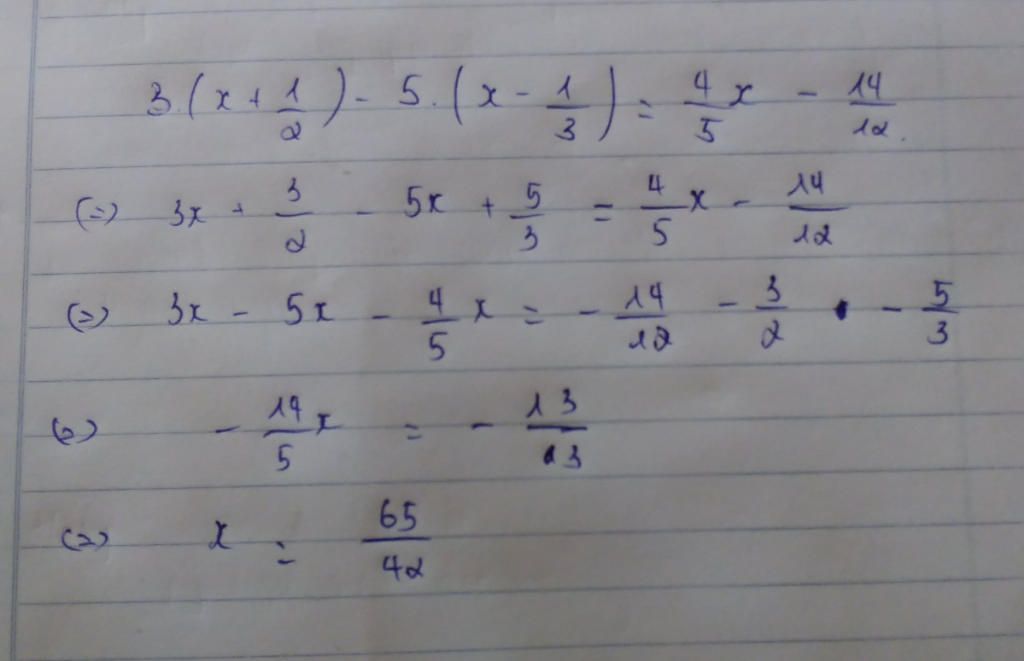 3.(x + 1/2) - 5.(x - 1/3) = 4/5 x - 14/12.
(=) 3x + 3/2 - 5x + 5/3 = 4/5 x - 14/12
(=) 3x - 5x - 4/5 x = - 14/12 - 3/2 - 5/3
(=) - 14/5 x = - 13/3
(=) x = 65/42